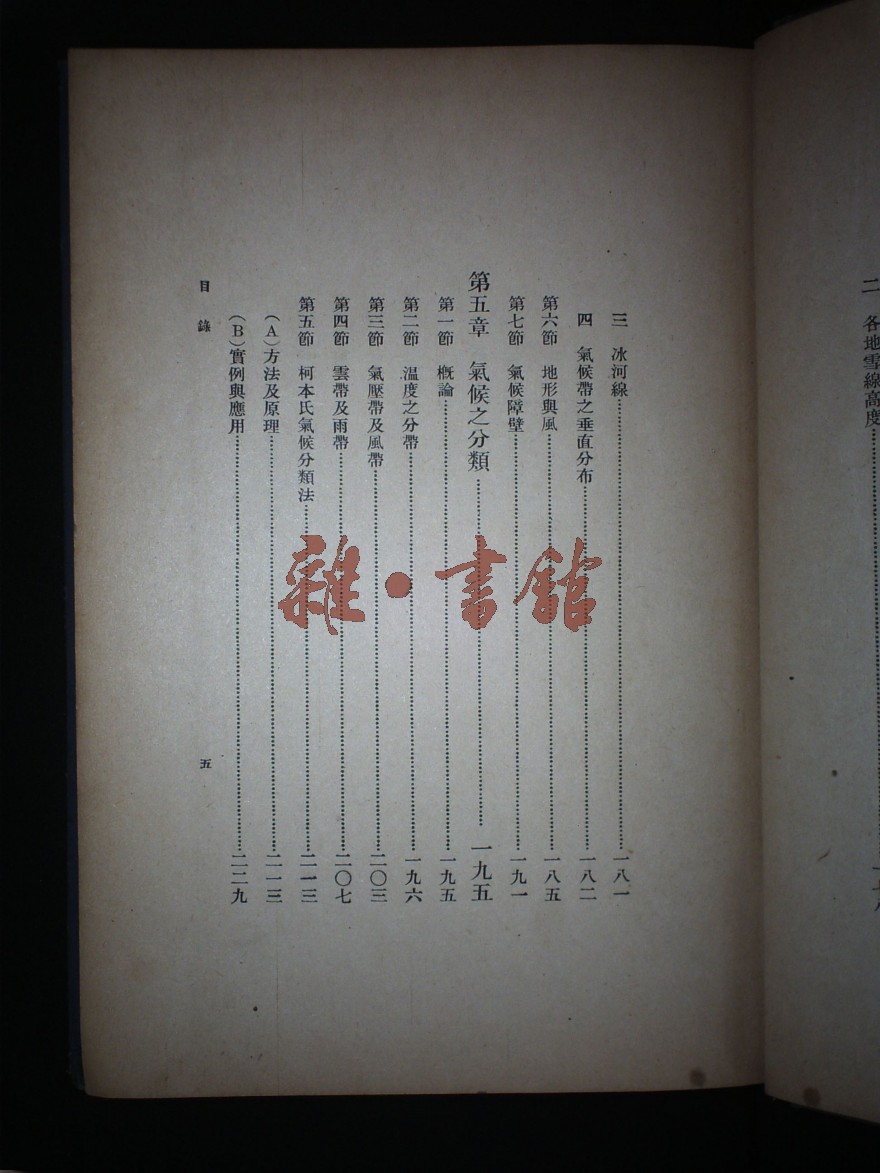 二　各地雪線高度
三　冰河線……一八一
四　氣候帶之垂直分布……一八二
第六節　地形與風……一八五
第七節　氣候障壁……一九一
第五章　氣候之分類……一九五
第一節　概論……一九五
第二節　溫度之分帶……一九六
第三節　氣壓帶及風帶……二〇三
第四節　雲帶及雨帶……二〇七
第五節　柯本氏氣候分類法……二一三
（A）方法及原理……二一三
（B）實例與應用……二二九
目錄
五
雜·書館